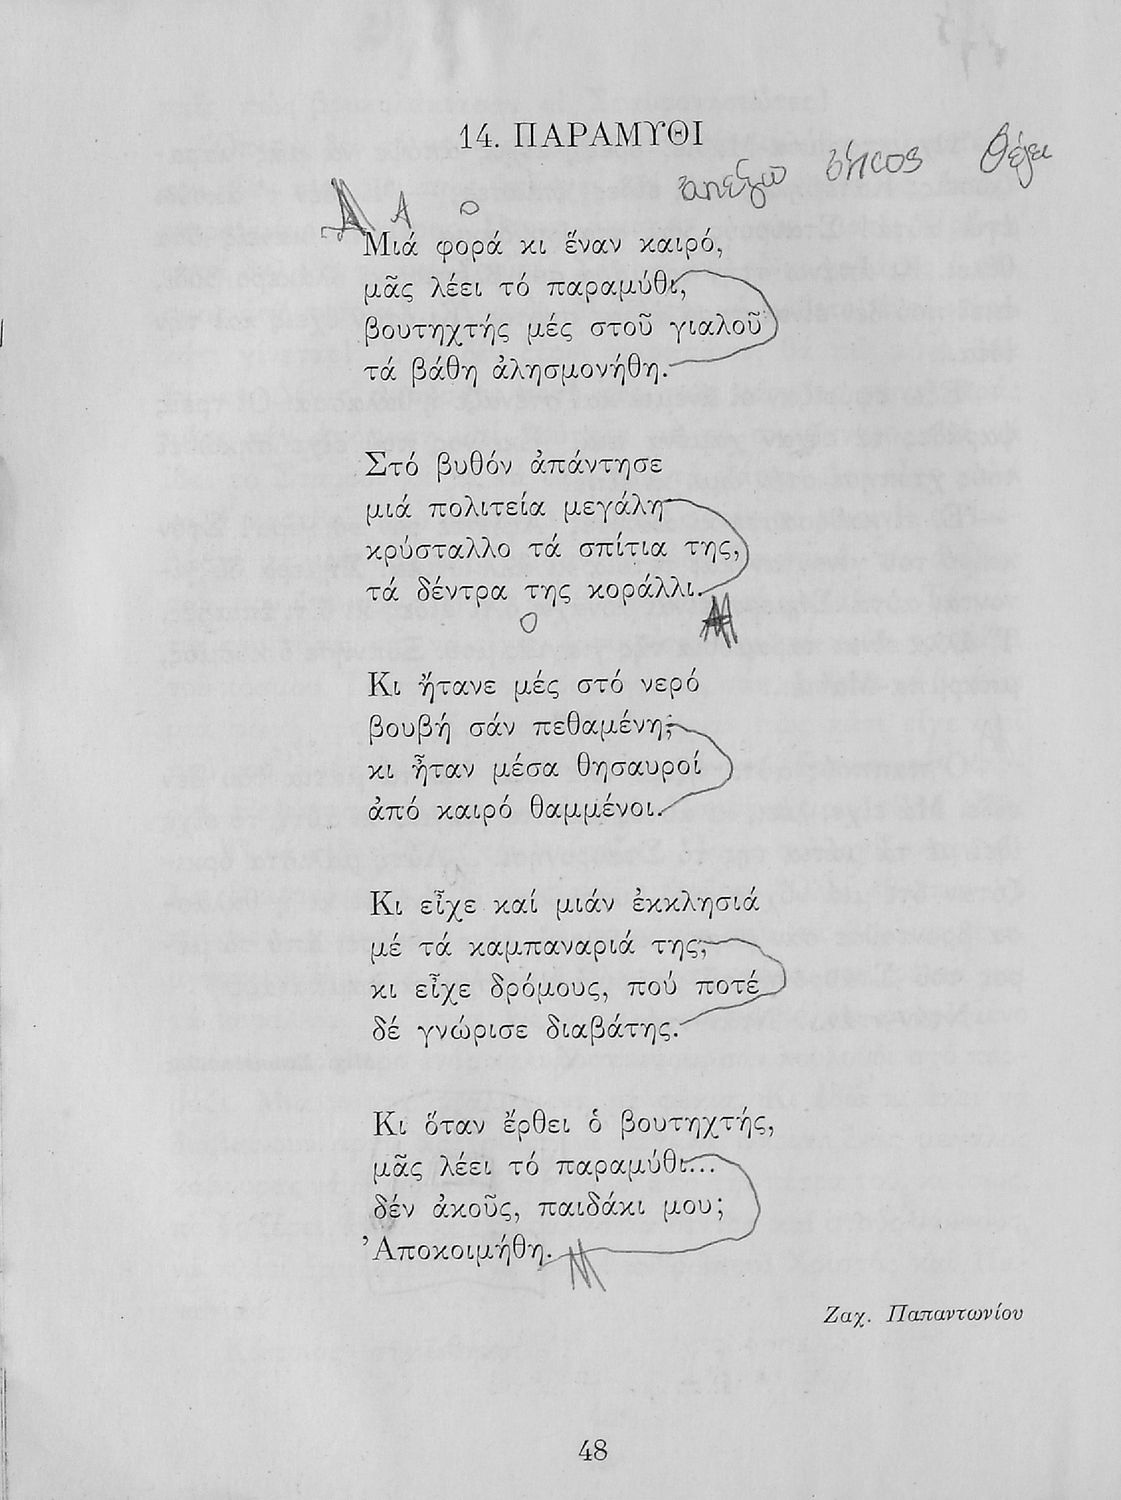 14. ΠΑΡΑΜΥΘΙ
ἀπέξω
Μιά φορά κι ἕναν καιρό,
μᾶς λέει τό παραμύθι,
βουτηχτής μές στοῦ γιαλοῦ
τά βάθη ἀλησμονήθη.
Στό βυθόν ἀπάντησε
μιά πολιτεία μεγάλη
κρύσταλλο τά σπίτια της,
τά δέντρα της κοράλλι.
Κι ἤτανε μές στό νερό
βουβή σάν πεθαμένη;
κι ἦταν μέσα θησαυροί
ἀπό καιρό θαμμένοι.
Κι εἶχε καί μιάν ἐκκλησιά
μέ τά καμπαναριά της,
κι εἶχε δρόμους, πού ποτέ
δέ γνώρισε διαβάτης.
Κι ὅταν ἔρθει ὁ βουτηχτής,
μᾶς λέει τό παραμύθι...
δέν ἀκοῦς, παιδάκι μου;
Ἀποκοιμήθη.
Ζαχ. Παπαντωνίου
48